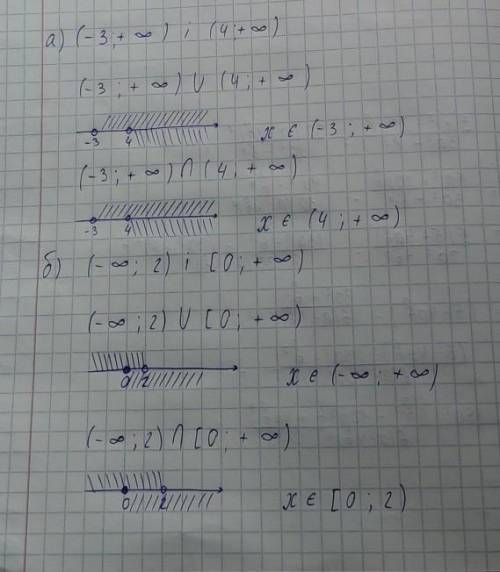 а) (-3 ; + ∞) і (4 ; + ∞)
(-3 ; + ∞) ∪ (4 ; + ∞)
-3 4 x ∈ (-3 ; +∞)
(-3 ; +∞) ∩ (4 ; + ∞)
-3 4 x ∈ (4 ; +∞)
б) (-∞ ; 2) і [0 ; +∞)
(-∞ ; 2) ∪ [0 ; +∞)
0 2 x ∈ (-∞ ; +∞)
(-∞ ; 2) ∩ [0 ; +∞)
0 2 x ∈ [0 ; 2)